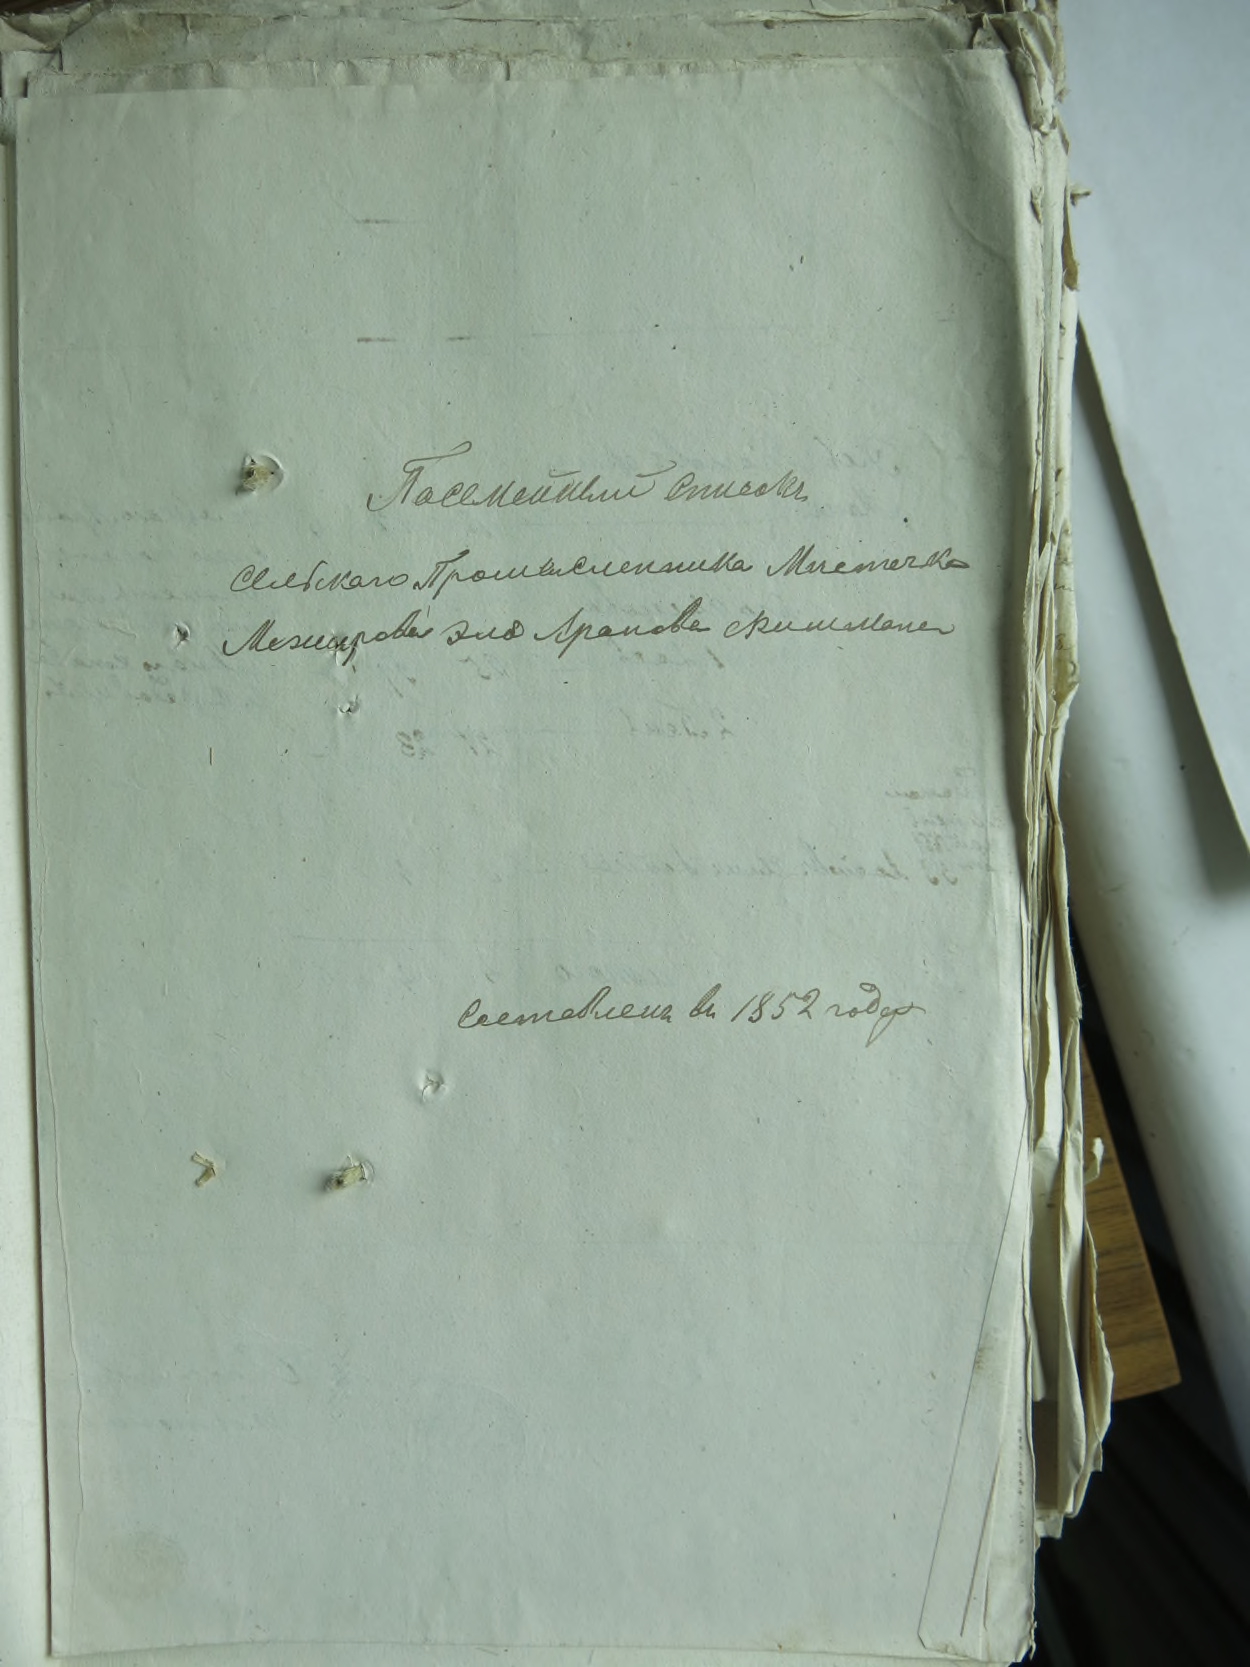 Посемейный списокъ
Сельскаго Промысленника Мистечка
Межирова Эля Аронова Фишмана
Составленъ въ 1852 году